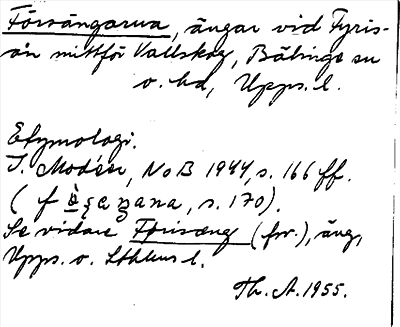 Försängarna, ängar vid Fyris-
ån mittför Vallskog, Bälinge sn
o. hd, Upps. l.
Etymologi.
I. Modéer, NoB 1944, s. 166 ff.
( f , s. 170).
Se vidare (fsv.), äng,
Upps. o. Sthlms l.
Th. A. 1955.